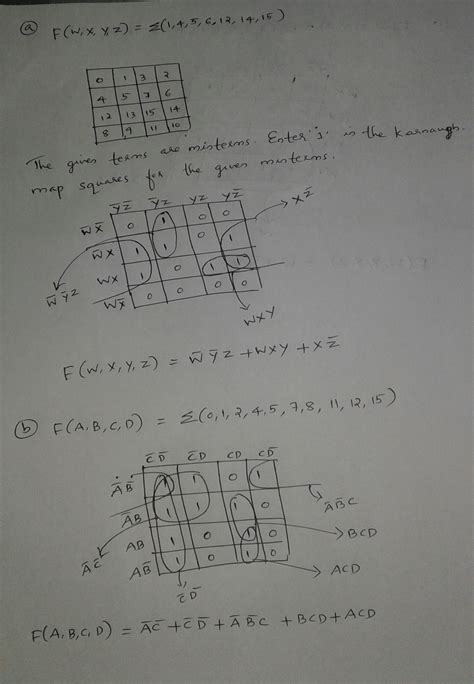 ⓐ F(W, X, Y, Z) = Σ(1, 4, 5, 6, 12, 14, 15)
0 1 3 2
4 5 7 6
12 13 15 14
8 9 11 10
The given terms are minterms. Enter '1's in the Karnaugh
map squares for the given minterms.
Y̅Z̅ Y̅Z YZ YZ̅
W̅X̅ 0 1 0 0 XZ̅
W̅X 1 1 0 1
WX 1 0 1 1
W̅Y̅Z WX̅ 0 0 0 0
WXY
F(W, X, Y, Z) = W̅Y̅Z + WXY + XZ̅
ⓑ F(A, B, C, D) = Σ(0, 1, 2, 4, 5, 7, 8, 11, 12, 15)
C̅D̅ C̅D CD CD̅
A̅B̅ 1 1 0 1
A̅B̅C
A̅B 1 1 1 0
AB 1 0 1 0 BCD
A̅C̅ AB̅ 1 0 1 0
ACD
C̅D̅
F(A, B, C, D) = A̅C̅ + C̅D̅ + A̅B̅C + BCD + ACD